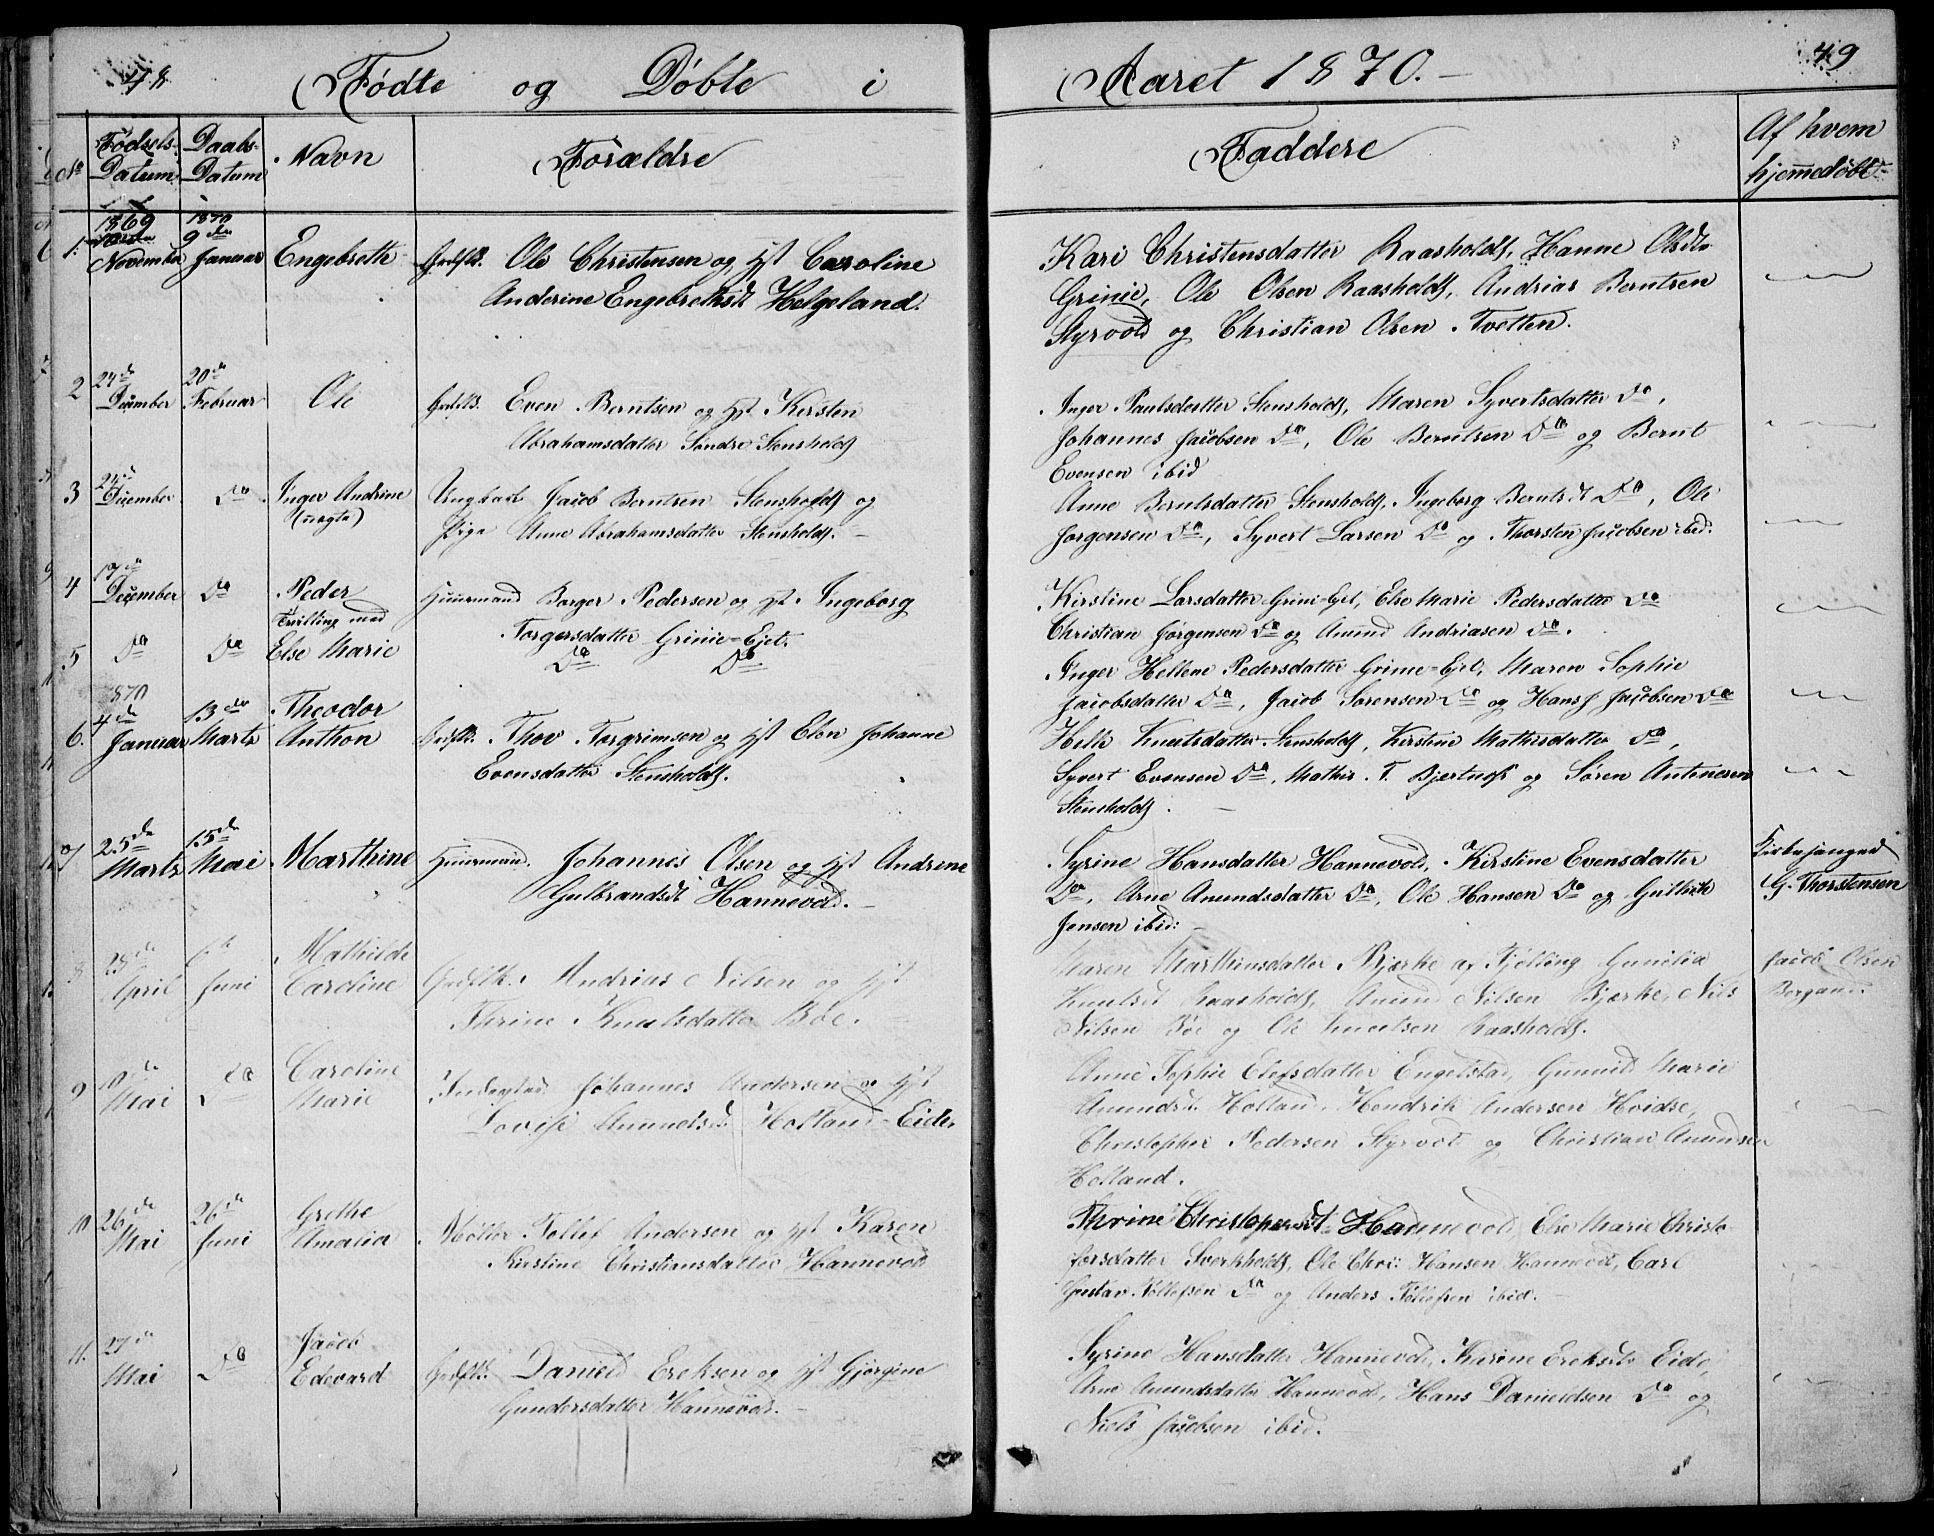 48
Fødte og Døbte i
Aaret 1870.
49
No
Fødsels-Datum
Daabs-Datum
Navn
Forældre
Faddere
Af hvem hjemmedøbt
1.
1869
November
1870
9de Januar
Engebreth
Gaefstk. Ole Christensen og hst Caroline
Anderine Engebrethsdt Helgeland.
Kari Christensdatter Raasholdt, Hanne Olsdtr
Grinie, Ole Olsen Raasholdt, Andrias Berntsen
Styrvold og Christian Olsen Tvetten.
2
24de December
20de Februar
Ole
Even Berntsen og hst Kirsten
Abrahamsdatter Søndre Stensholdt
Inger Paulsdatter Stensholdt, Maren Syvertsdatter Do,
Johannes Jacobsen Do, Ole Berntsen Do og Bernt
Evensen ibid
3
24de December
Do
Inger Andrine
(uægte)
Ungkarl Jacob Berntsen Stensholdt og
Pige Anne Abrahamsdatter Stensholdt.
Anne Berntsdatter Stensholdt, Ingeborg Berntsdt Do, Ole
Jørgensen Do, Syvert Larsen Do og Thorsten Jacobsen ibid:
4
December
Do
Peder
Tvilling med
Huusmand Borger Pedersen og hst Ingeborg
Torgersdatter Grinie-Ejet.
Kirstine Larsdatter Grini-Ejet, Else Marie Pedersdatter Do
Christian Jørgensen Do og Amund Andriasen Do.
5
Do
Do
Else Marie
Do Do
Inger Hellene Pedersdatter Grinie-Ejet, Maren Sophie
Jacobsdatter Do, Jacob Sørensen Do og Hans J. Jacobsen Do
6.
1870
4de Januar
13de Marts
Theodor
Anthon
Thov Torgrimsen og hst Elen Johanne
Evensdatter Stensholdt.
Helle Knutsdatter Stensholdt, Kirstine Mathisdatter Do,
Syvert Evensen Do, Mathis T. Bjertnæs og Søren Antonesen
Stensholdt.
7
25de Marts
15de Mai
Marthine
Huusmand Johannes Olsen og hst Andrine
Gulbrandsdt Hannevold.
Syrine Hansdatter Hannevold, Kirstine Evensdatter
Do, Arne Amundsdatter Do, Ole Hansen Do og Gullik
Jensen ibid:
Kirkesanger
G. Thorstensen
8
28de April
6te Juni
Mathilde
Caroline
Andrias Nilsen og hst
Thrine Knutsdatter Bøe.
Maren Marthinsdatter Bjerke af Fjelling Gunilia
Knutsdt Raasholdt, Amund Nilsen Bjerke, Nils
Nilsen Bøe og Ole Knutsen Raasholdt.
Jacob Olsen
9
10de Mai
Do
Caroline
Marie
Johannes Andersen og hst
Lovise Amundsdt Holland-Eide
Anne Sophie Elefsdatter Engelstad, Gunnild Marie
Amundsdt Holland, Hendrik Andersen Hvidse,
Christopher Pedersen Styrvold og Christian Amundsen
Holland.
10
26de Mai
26de Juni
Grethe
Amalia
Møller Tollef Andersen og hst Karen
Kirstine Christiansdatter Hannevold
Thrine Christopersdt Hannevold, Else Marie Christo-
forsdatter Sverkholdt, Ole Chri: Hansen Hannevold, Carl
Gustav Tollefsen Do og Anders Tollefsen ibid.
11.
27de Mai
Do
Jacob
Edevard
Danield Ereksen og hst Gjørgine
Gundersdatter Hannevold.
Syrine Hansdatter Hannevold, Karine Ereksdtr Eide,
Arne Amundsdatter Hannevold, Hans Danieldsen Do og
Niels Jacobsen ibid.